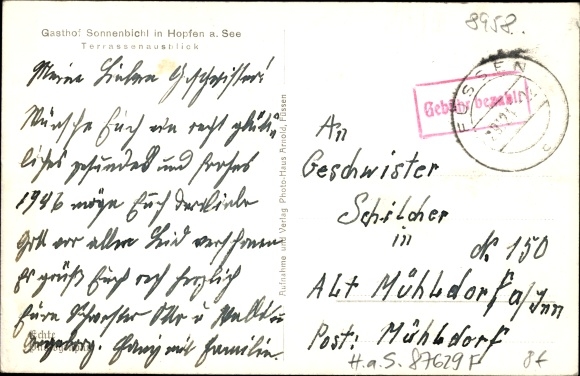 8958.
Gasthof Sonnenbichl in Hopfen a. See
Terrassenausblick
Meine Lieben Geschwister!
Wünsche Euch ein recht glück-
liches gesundes und frohes
1946 möge Euch der liebe
Gott vor allem Leid verschonen
Es grüßt Euch recht herzlich
Eure Schwester u.
mit Familie
Echte
Aufnahme und Verlag Photo-Haus Arnold, Füssen
Gebühr bezahlt
FÜSSEN
An
Geschwister
Schilcher
in
No. 150
Alt Mühldorf a/Inn
Post: Mühldorf
H.a.S. 87629 F
8f